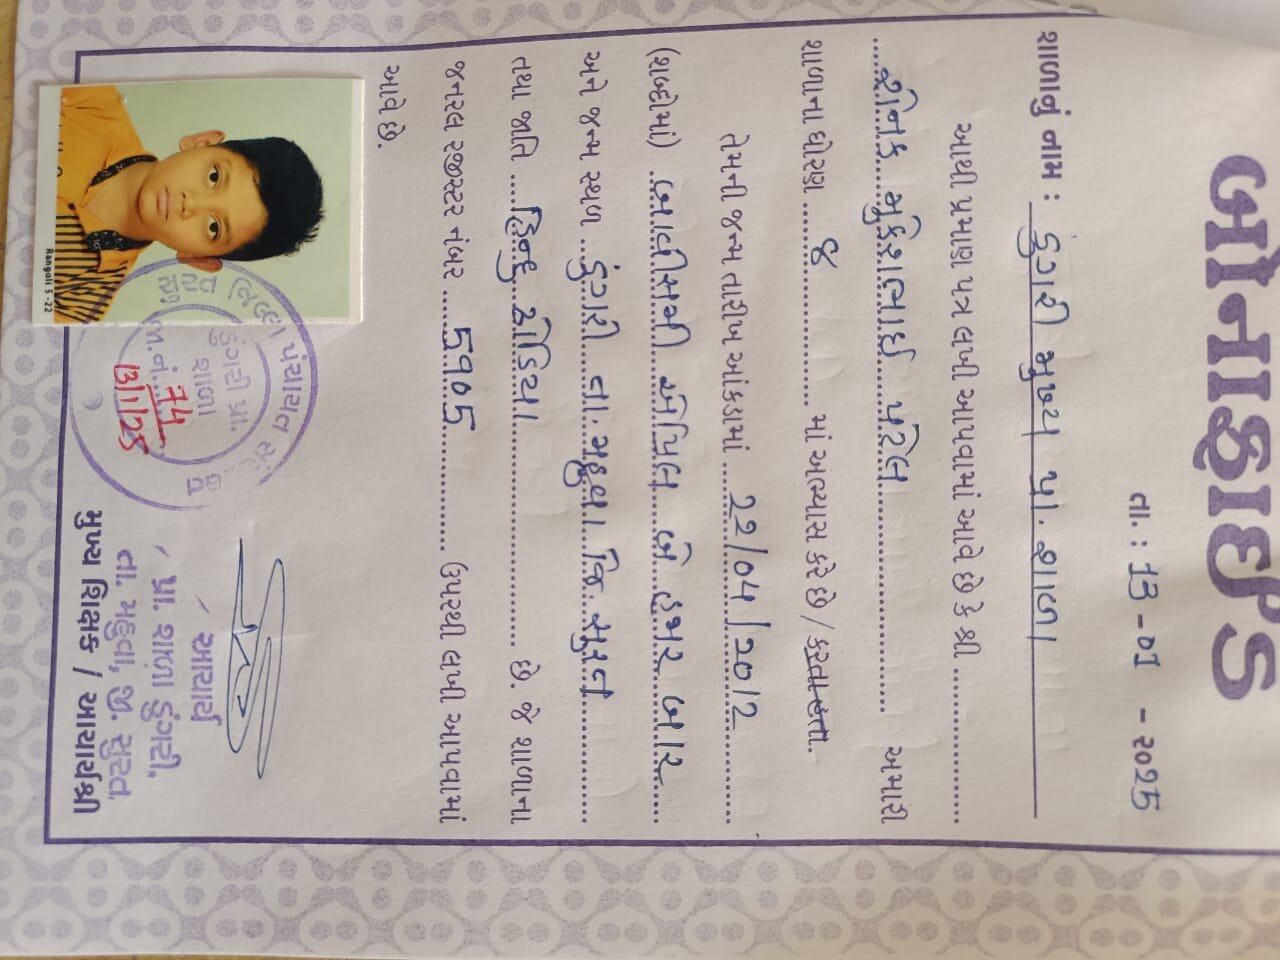 બોનાફાઈડ
તા. : 13 - 01 - ૨૦25
શાળાનું નામ : ડુંગરી મુખ્ય પ્રા. શાળા
આથી પ્રમાણ પત્ર લખી આપવામાં આવે છે કે શ્રી ............
....... મુકેશભાઈ પટેલ ............ અમારી
શાળાના ધોરણ ........ ૭ ............ માં અભ્યાસ કરે છે / કરતા હતા.
તેમની જન્મ તારીખ આંકડામાં .... 22/04/2012 ............
(શબ્દોમાં) ... બાવીસમી એપ્રિલ બે હજાર બાર ......
અને જન્મ સ્થળ .. ડુંગરી તા. મહુવા જિ સુરત ............
તથા જાતિ .... હિન્દુ ઢોડિયા ............ છે. જે શાળાના
જનરલ રજીસ્ટર નંબર .... ૬૧૦૬ ............ ઉપરથી લખી આપવામાં
આવે છે.
Rangoli 5 -22
જિલ્લા પંચાયત
ડુંગરી પ્રા.
શાળા
જા.નં. 74
13/1/25
આચાર્ય
પ્રા. શાળા ડુંગરી,
તા. મહુવા, જી. સુરત.
મુખ્ય શિક્ષક / આચાર્યશ્રી